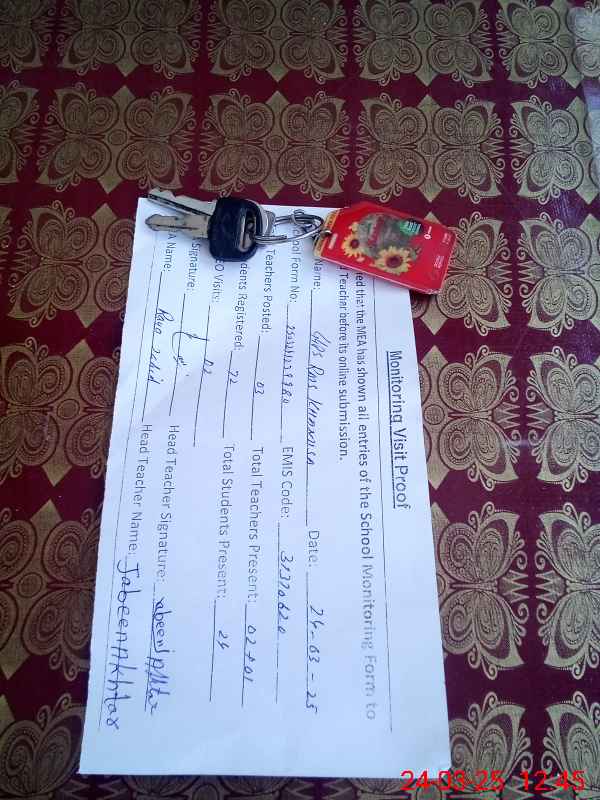 Monitoring Visit Proof
ied that the MEA has shown all entries of the School Monitoring Form to
d Teacher before its online submission.
Name: GGPS Date: 24-03-25
chool Form No: EMIS Code: 31320620
Teachers Posted: 03 Total Teachers Present: 02+01
dents Registered: 72 Total Students Present: 24
EO Visits: 02
Signature: Head Teacher Signature:
A Name: Rana Zahid Head Teacher Name: Jabeen Akhtar
24-03-25 12:45